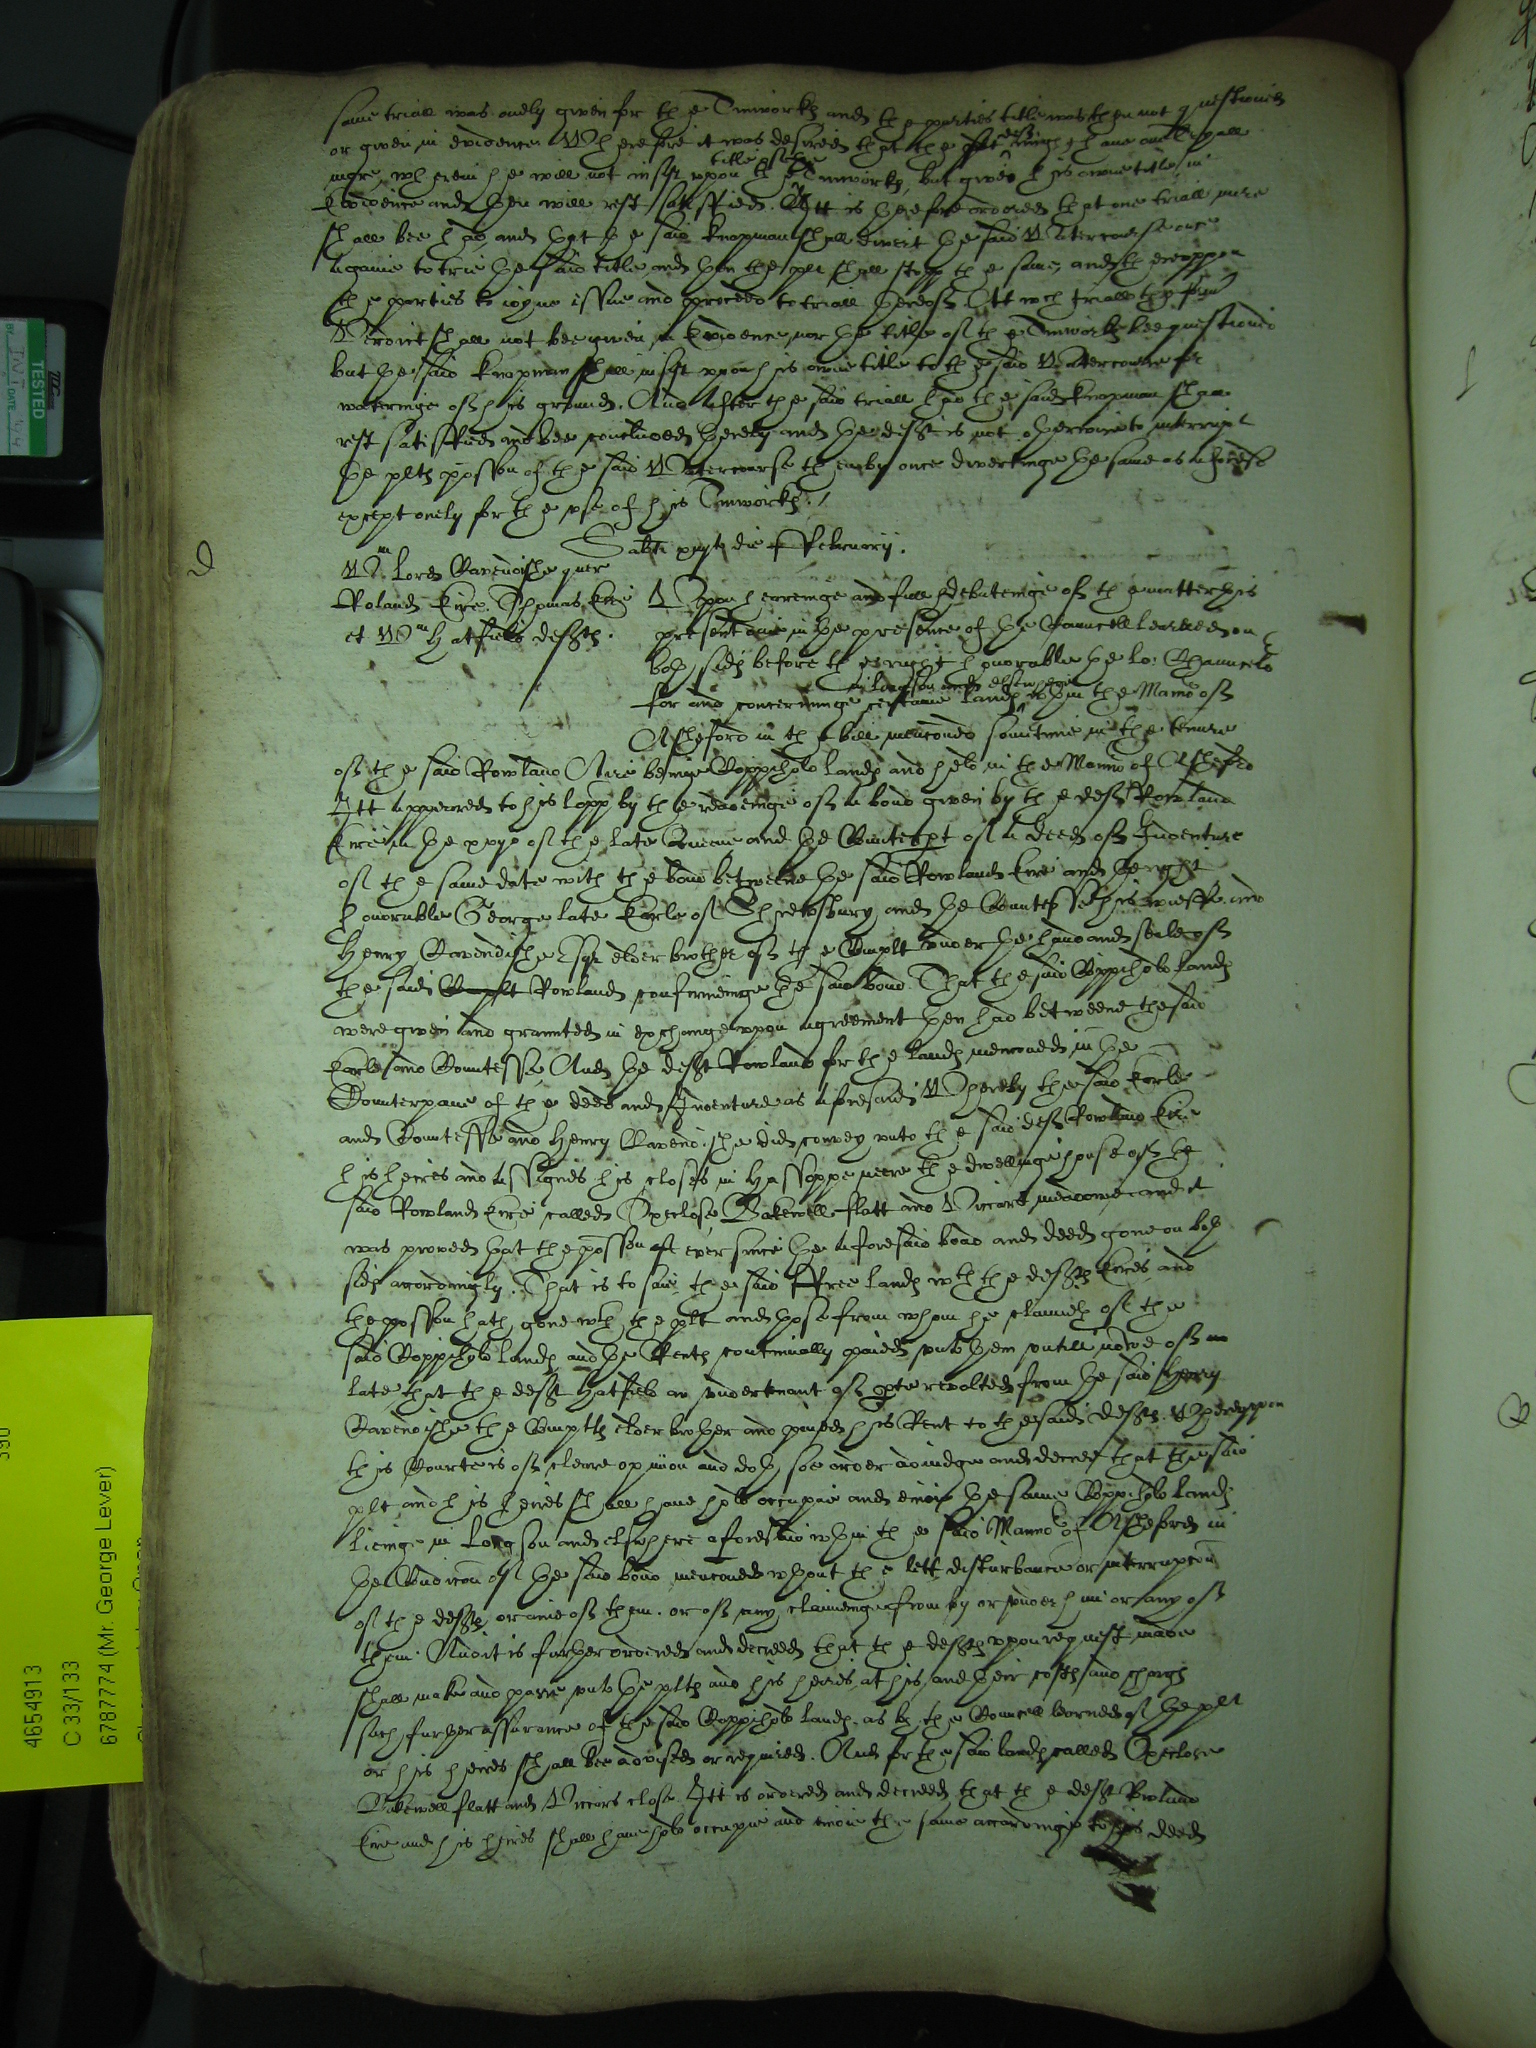 same triall was onely given for the Tinworkes and the parties title was then not questioned
or given in evidence Wherefore it was desired that the deft might have onely
more, wherein he will not insist upon the title of the Tinworkes, but give his owne title in
Evidence and then will rest satisfied. Itt is therefore ordered that one triall more
shall bee had, and that the said Knapman shall divert the said Watercourse once
againe to trie the said title and then the plt shall stopp the same, and thereuppon
the parties to ioyne issue and proceed to triall thereof Att wch triall the
Verdict shall not bee given in Evidence, nor the title of the Tinworkes bee questioned
but the said Knapman shall insist upon his owne title to the said Watercourse for
wateringe of his grounde. And After the said triall had the said Knapman shall
rest satisfied and bee concluded thereby and the deft is not otherwise to interrupt
the plts possion of the said Watercourse then by once divertinge the same as aforesd
except onely for the use of his Tinworkes./
Sabti die Februarij.
Wm Lord Cavendishe quer
Roland Eire Thomas Eire
et Wm Hatfield defts.
Upon hearinge and full debateinge of the matter this
present daie in the presence of the Councell learned on
both sides before the right honorable the lo: Chauncelor
for and concerninge certaine landes in Longson and elswhere wthin the Mannor of
Asheford in the bill menconed sometime in the tenure
of the said Rowland Aire beinge Coppihold landes and held in the Mannor of Asheford
Itt appeared to his lopp by the readeinge of a bond given by the deft Rowland
Eire in the xxxjo of the late Queene and the Counterpt of a deed of Indenture
of the same date with the bond betweene the said Rowland Eire and the right
honorable George late Earle of Shrewsbury and the Countesse his wieffe and
Henry Cavendishe Esqr elder brother of the Complt under the hand and seale of
the said Complt Rowland confirminge the said bond. That the said Coppihold landes
were given and graunted in exchange upon agreement then had betweene the said
Earle and Countesse, And the deft Rowland for the landes menconed in the
Counterpane of the deed and Indenture as aforesaid Whereby the said Earle
and Countesse and Henry Cavendishe did convey unto the said deft Rowland Eire
his heires and assignes his closes in Hassoppe neere the dwellinge house of the
said Rowland Eire called Oxeclose, Bakewell flatt and Viccars meadowe and it
was proved that the possion ever since the aforesaid bond and deed gone on both
sides accordingly. That is to saie, the said ffree landes wth the defts Eires and
the possion hath gone wth the plt and those from whom he claimeth of the
said Coppihold landes and the Rents continually paied unto them untill nowe of
late that the deft Hatfield an undertenant of parte revolted from the said Henry
Cavendishe the Complts elder brother and paied his Rent to the said defts. Whereuppon
this Courte is of cleare opinion and doth soe order adiudge and decree that the said
plt and his heires shall have hold occupie and enioy the same Coppihold landes
lieinge in Longson and elswhere aforesaid wthin the said Mannor of Asheford in
the Condicon of the said bond menconed wthout the lett disturbance or interrupcon
of the defts, or anie of them. or of any claiminge from by or under him or any of
them. And it is further ordered and decreed that the defts upon request made
shall make and passe unto the plts and his heires, at his and their costs and charges
such further assurance of the said Coppihold landes as by the Councell learned of the plt
or his heires shall bee advised or required. And for the said landes called Oxeclose
Bakewell flatt and Viccars close Itt is ordered and decreed that the deft Rowland
Eire and his heires shall have hold occupie and enioie the same accordinge to his deed
TESTED
4654913
C 33/133
6787774 (Mr. George Lever)